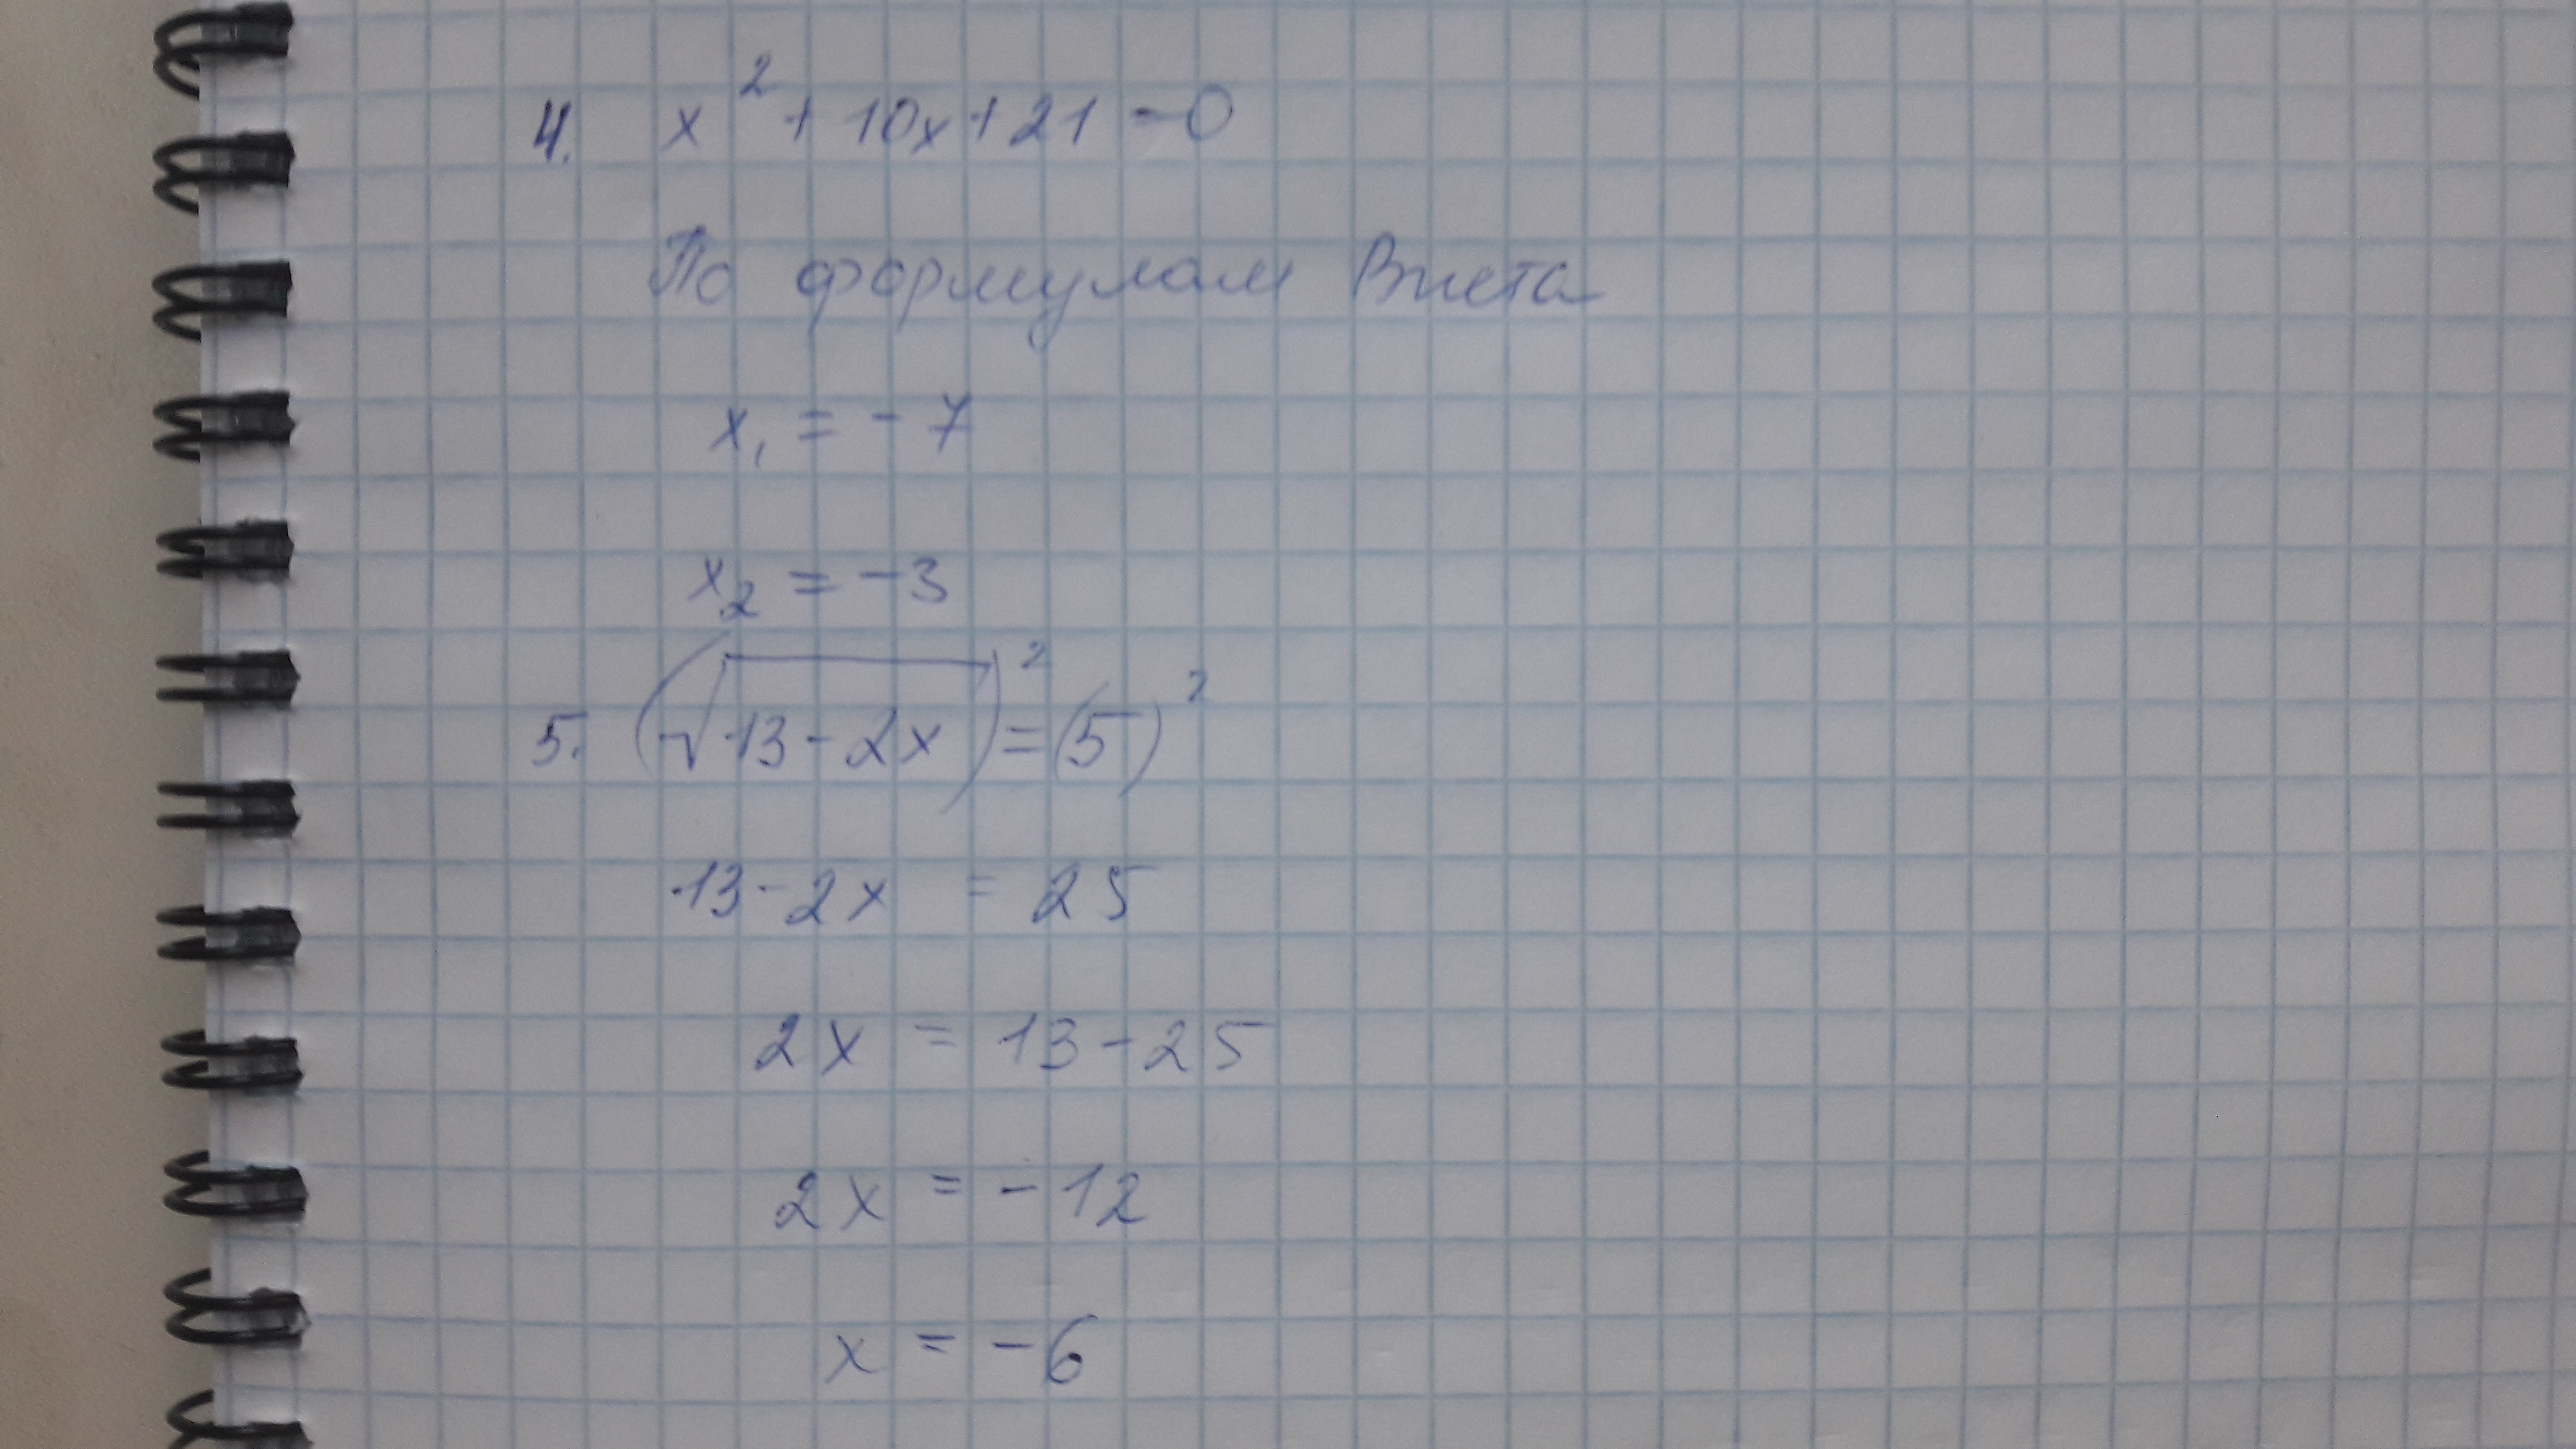 4. x² + 10x + 21 = 0
По формулам Виета
x₁ = -7
x₂ = -3
5. (√13 - 2x)² = (5)²
13 - 2x = 25
2x = 13 - 25
2x = -12
x = -6